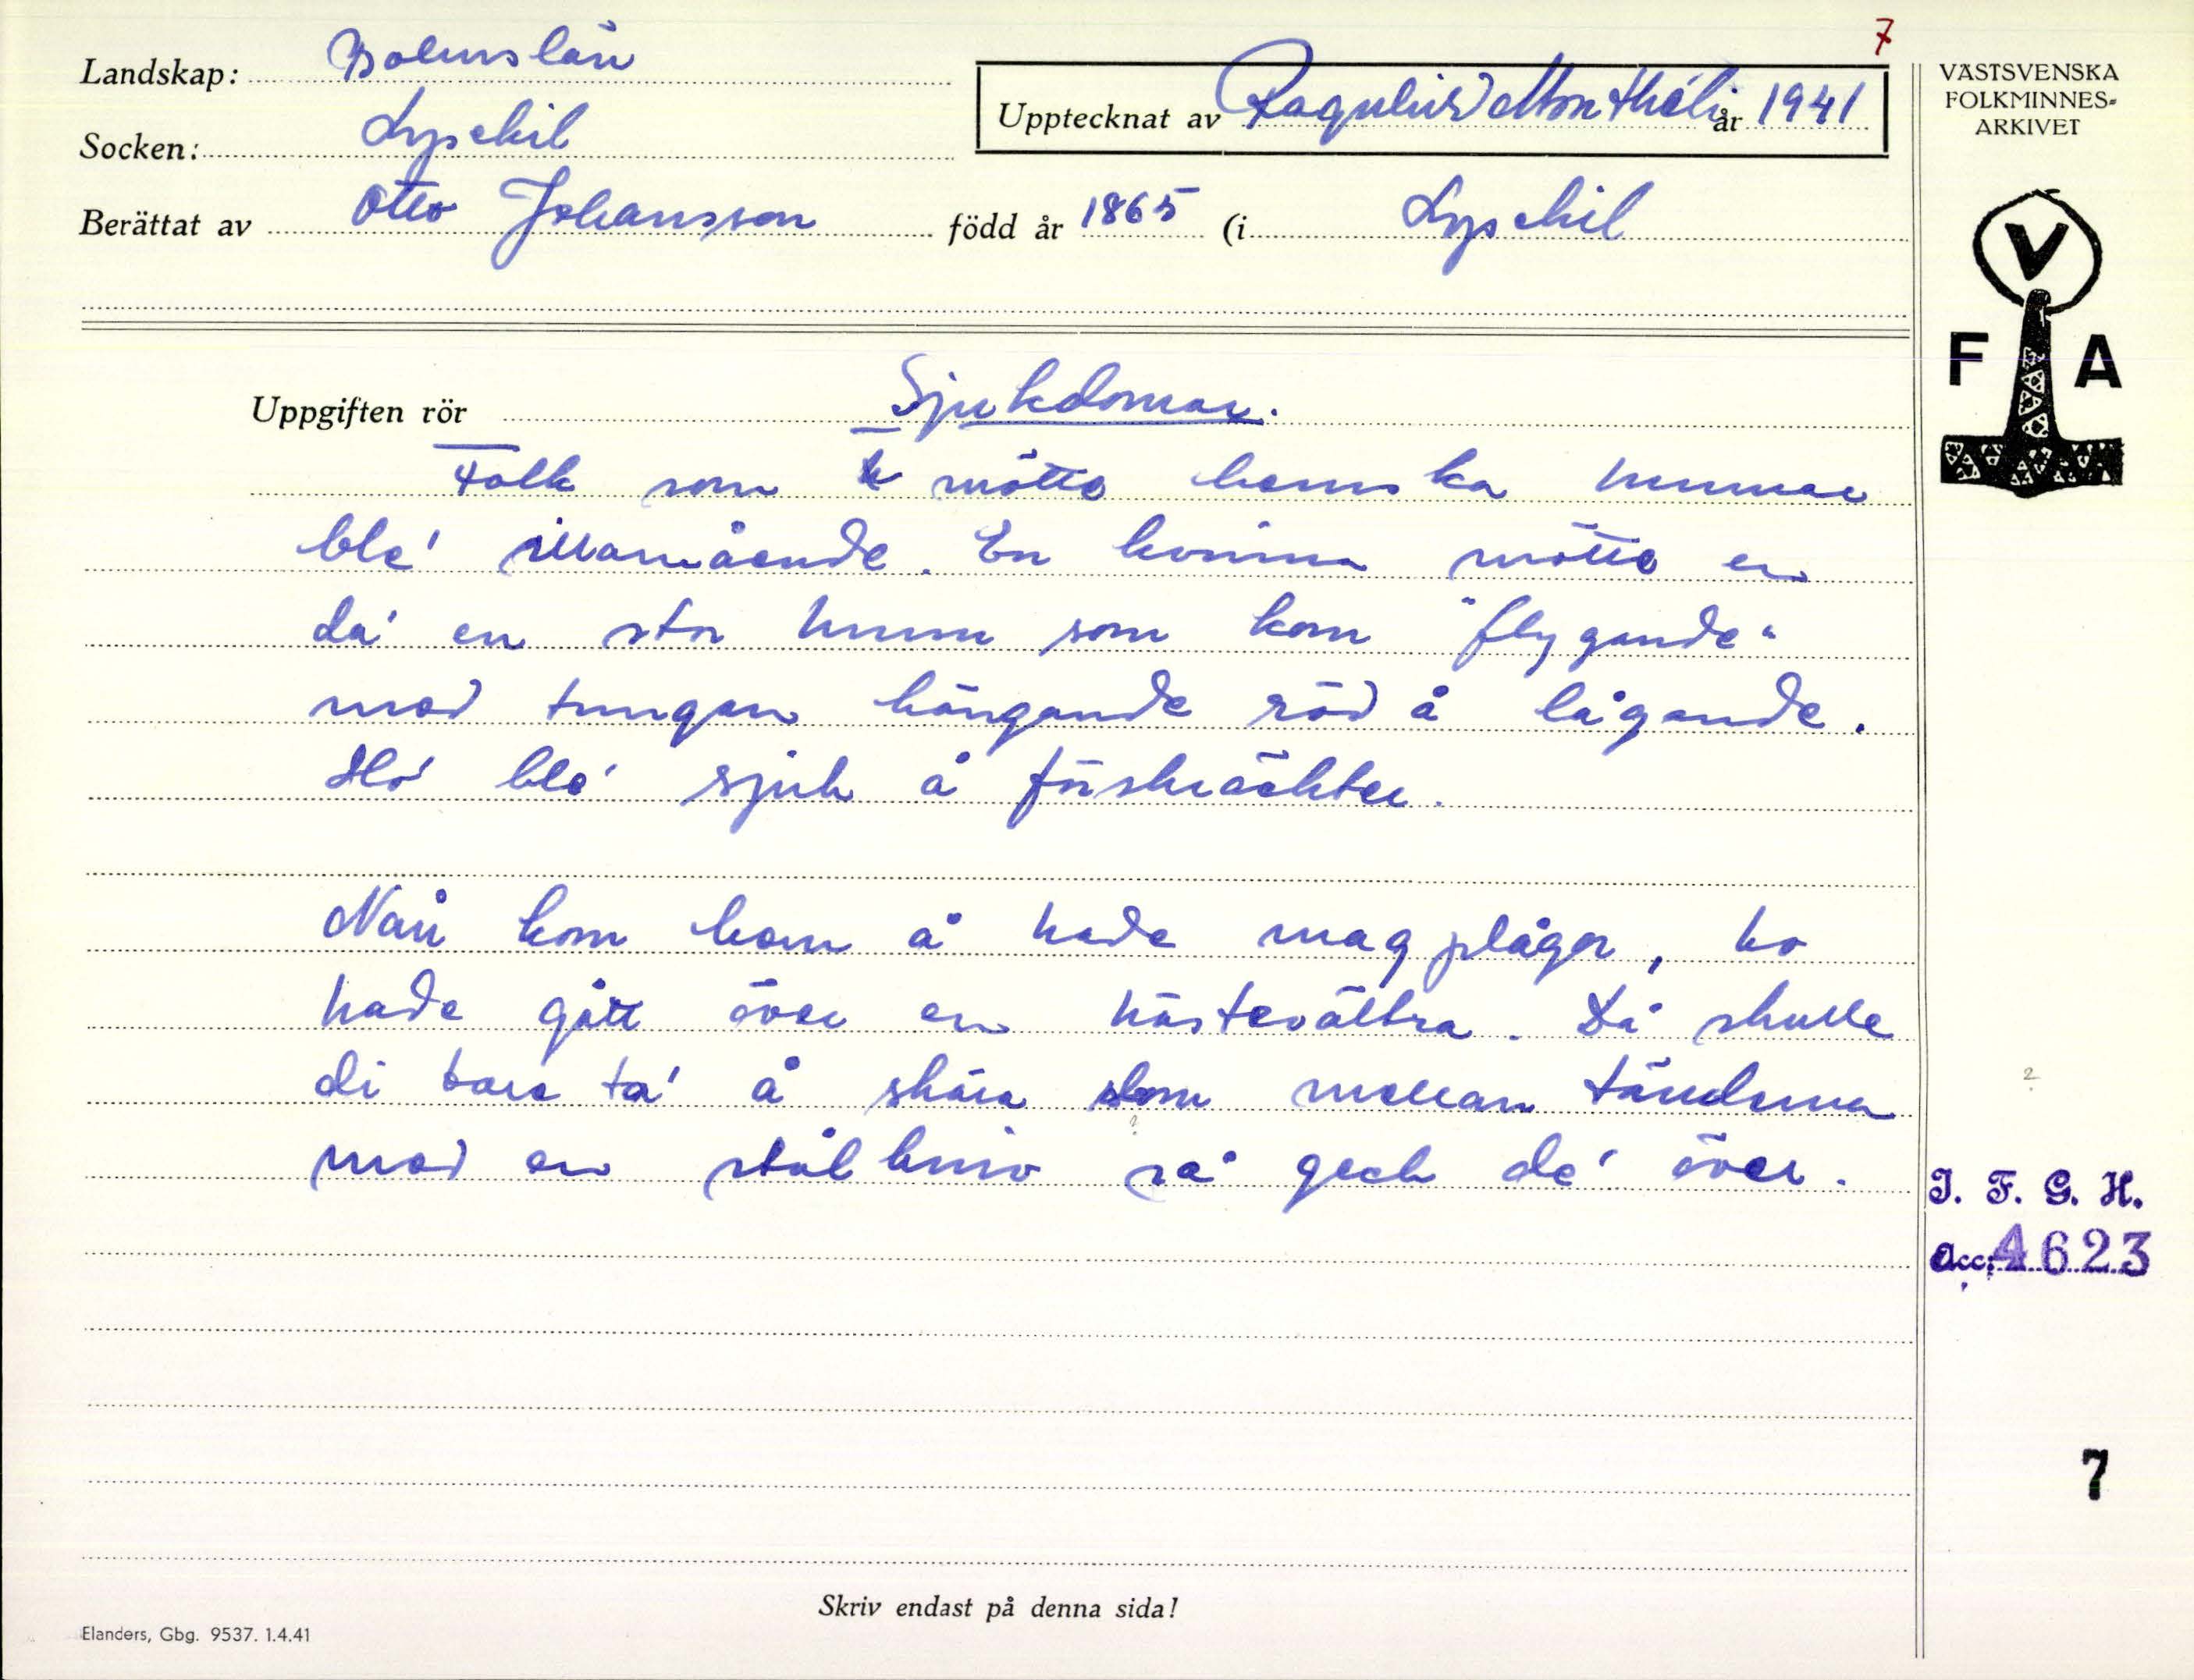 7
Landskap: Bohuslän
Upptecknat av Ragnhild år 1941
Socken: Lysekil
Berättat av Otto Johansson född år 1865 (i Lysekil
VÄSTSVENSKA
FOLKMINNES-
ARKIVET
V
F A
Uppgiften rör Sjukdomar.
Folk som mötte hemska hunnar
ble' illamående. En kvinna mötte en
da' en stor hunn som kom "flygande"
med tungan hängande röd å lågande.
Ho' ble' sjuk å förskräckter.
När kom hem å hade magplågor, ho
hade gått över en hästevältra. Då skulle
di bara ta' å skära dom mellan tänderna
med en stålkniv så geck de' över.
?
?
I. F. G. H.
Acc: 4623
7
Skriv endast på denna sida!
Elanders, Gbg. 9537. 1.4.41